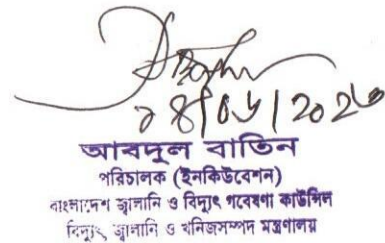 আবদুল বাতিন
পরিচালক (ইনকিউবেশন)
বাংলাদেশ জ্বালানি ও বিদ্যুৎ গবেষণা কাউন্সিল
বিদ্যুৎ জ্বালানি ও খনিজসম্পদ মন্ত্রণালয়